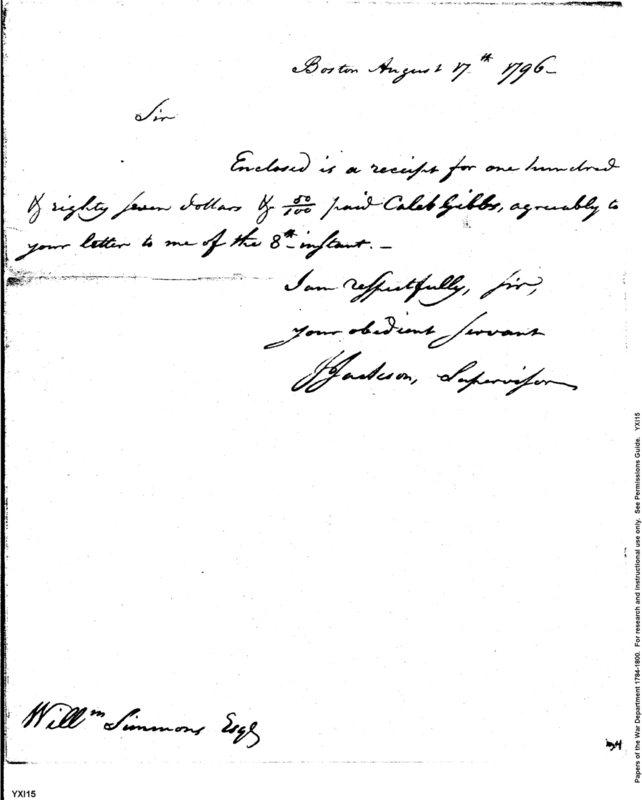 Boston August 17th 1796_
Sir
Enclosed is a receipt for one hundred
& eighty seven dollars & 50/100 paid Caleb Gibbs, agreeably to
your letter to me of the 8th instant._
I am respectfully, sir,
your obedient servant
J Jackson, Supervisor
Willm Simmons Esqr
YXI15
Papers of the War Department 1784-1800. For research and instructional use only. See Permissions Guide. YXI15